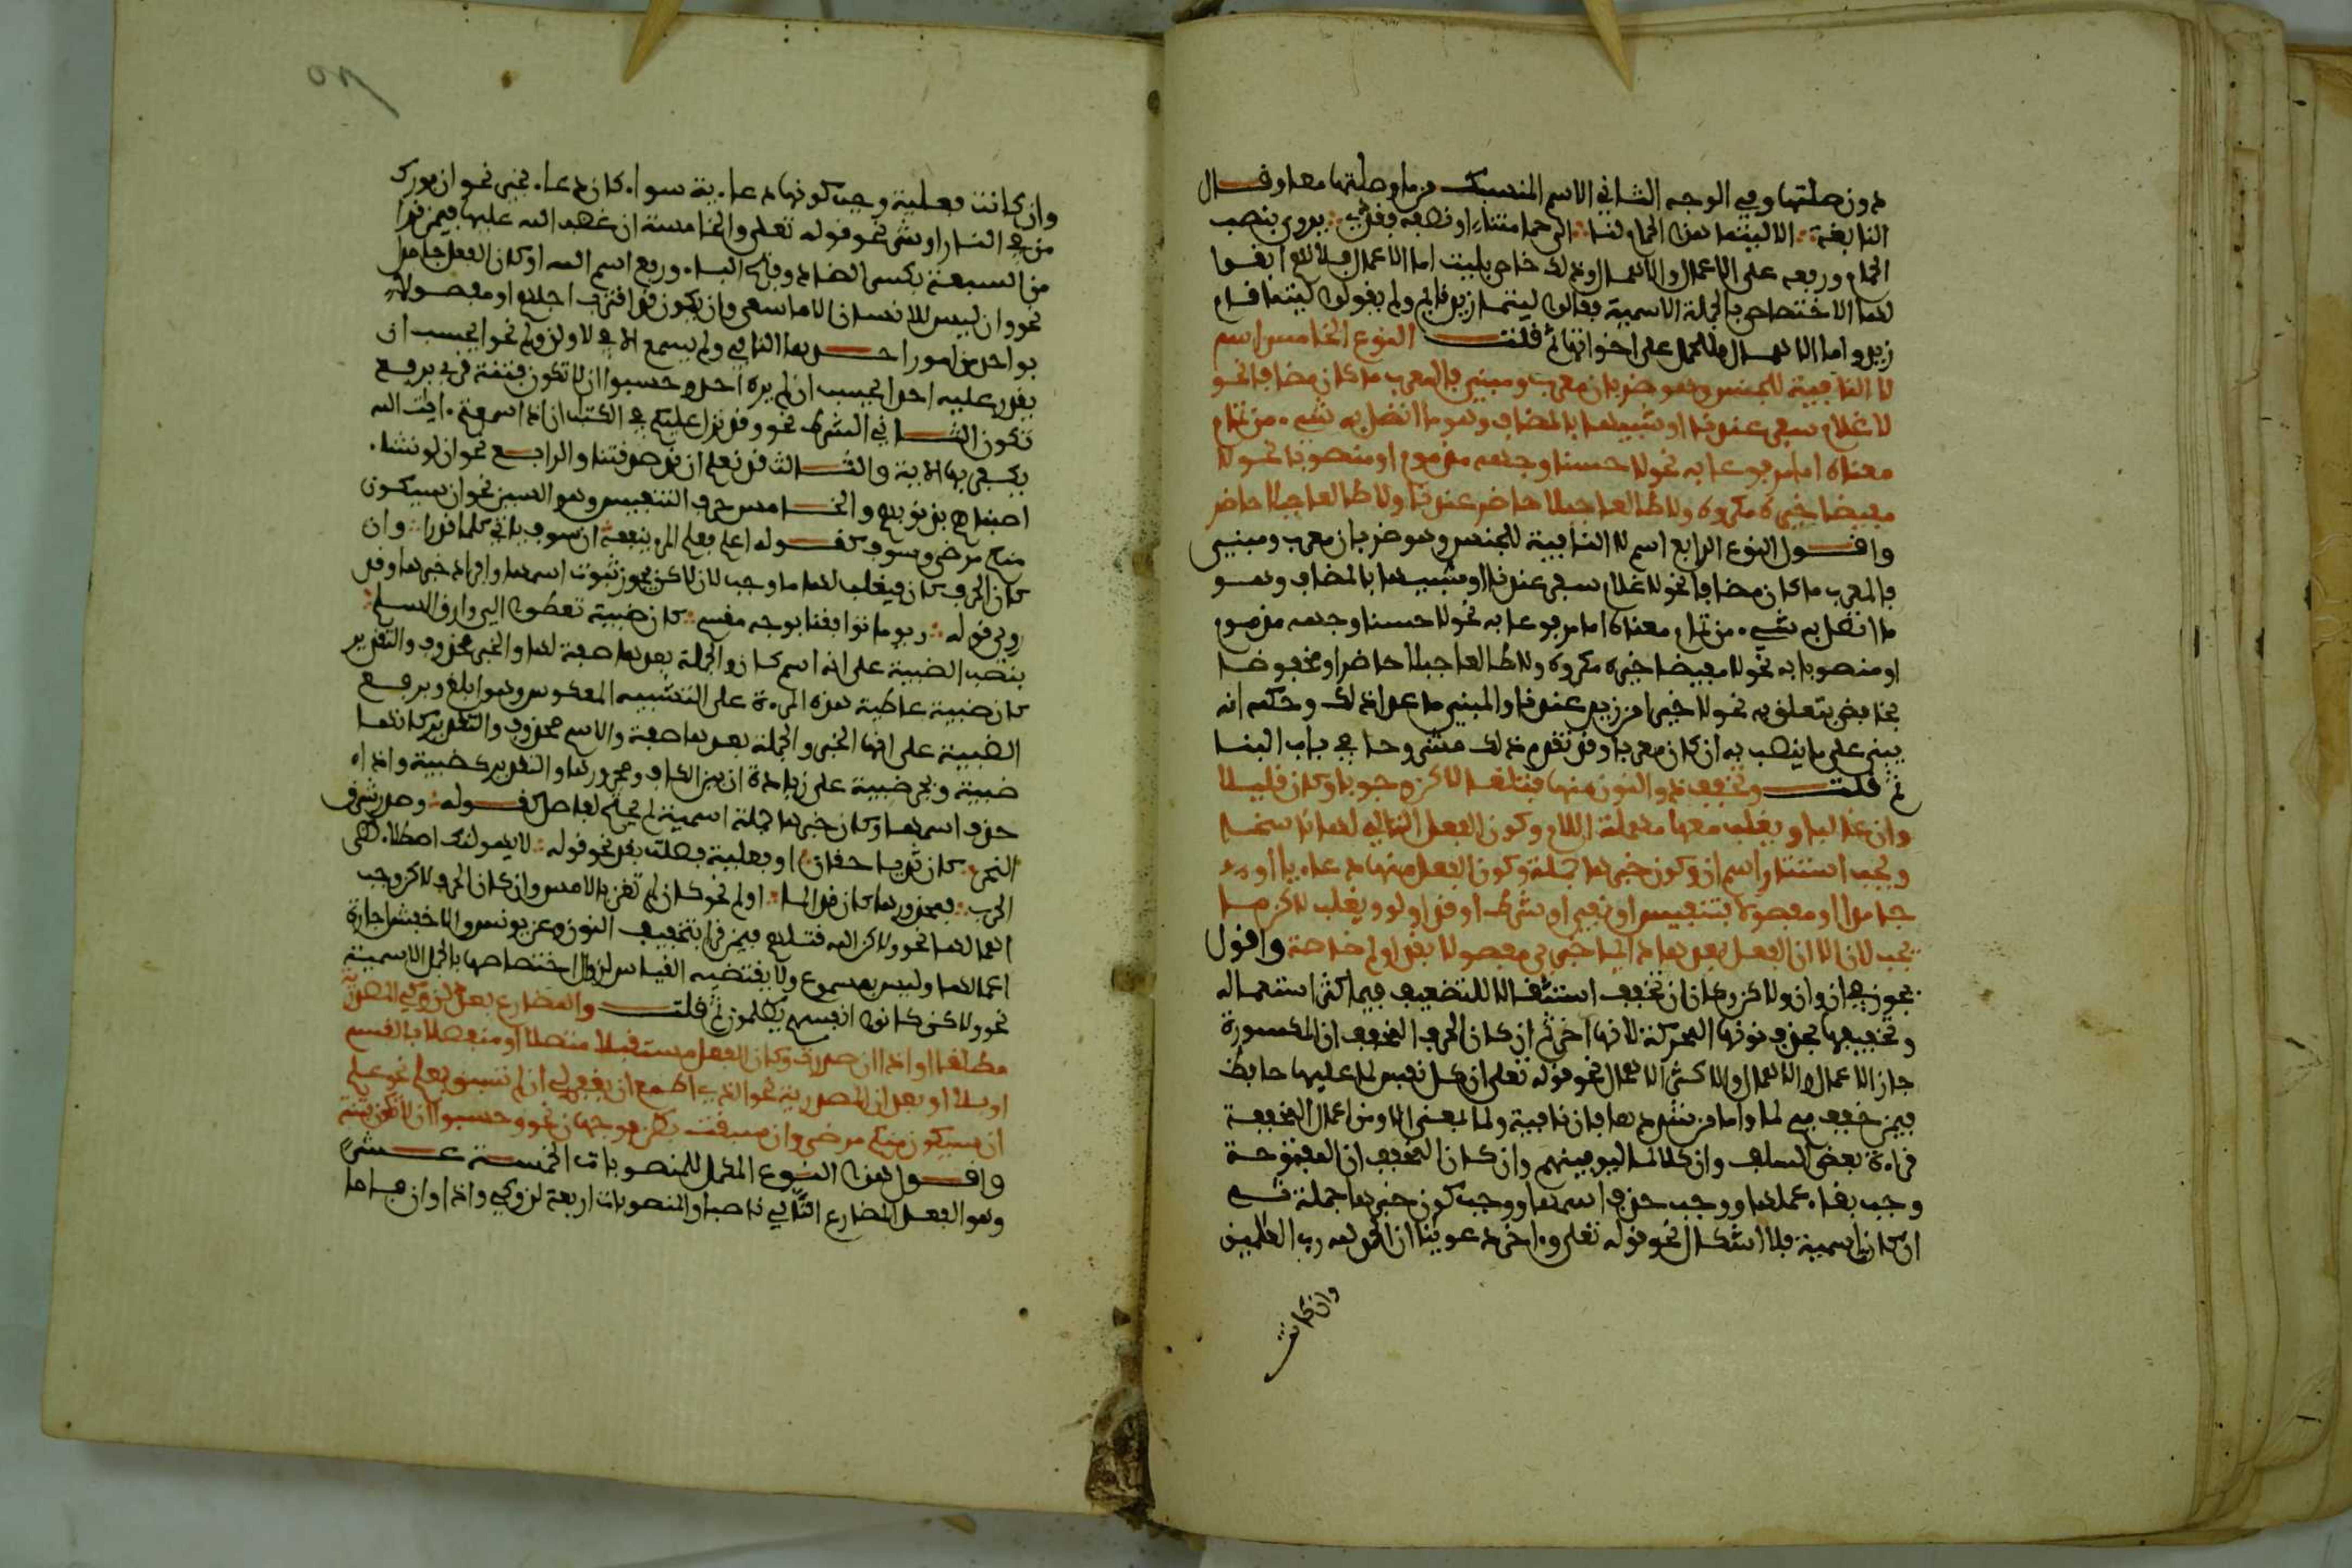 دون صلتها وفي الوجه الثاني الاسم المنسبك من ما وصلتها معا وقال
النابغة الا ليتما هذا الحمام لنا الى حمامتنا او نصفه فقد يروى بنصب
الحمام ورفعه على الاعمال والاهمال وذلك خاص بليت اما الاعمال فلانهم ابقوا
لها الاختصاص بالجملة الاسمية فقالوا ليتما زيد قائم ولم يقولوا ليتما قام
زيد واما الاهمال فللحمل على اخواتها ثم قلت النوع الخامس اسم
لا النافية للجنس وهو ضربان معرب ومبني فالمعرب ما كان مضافا نحو
لا غلام سفر عندنا او شبيها بالمضاف وهو ما اتصل به شيء من تمام
معناه اما مرفوعا به نحو لا حسنا وجهه مذموم او منصوبا نحو لا
مفيضا خيره مكروه ولا طالعا جبلا حاضر عندنا ولا طالعا جبلا حاضر
واقول النوع الرابع اسم لا النافية للجنس وهو ضربان معرب ومبني
فالمعرب ما كان مضافا نحو لا غلام سفر عندنا او شبيها بالمضاف وهو
ما اتصل به شيء من تمام معناه اما مرفوعا به نحو لا حسنا وجهه مذموم
او منصوبا به نحو لا مفيضا خيره مكروه ولا طالعا جبلا حاضر او مخفوضا
بخافض يتعلق به نحو لا خيرا من زيد عندنا والمبني ما عدا ذلك وحكمه انه
يبنى على ما ينصب به ان كان معربا وقد تقدم ذلك مشروحا في باب البنا
ثم قلت وتخفف ذو النون منها فتلغى لاكن وجوبا وكان قليلا
وان غالبا ويغلب معها مهملة اللام وكون الفعل التالي لها ناسخا
ويجب استتار اسم ان وكون خبرها جملة وكون الفعل منها دعاءيا او
جامدا او مفصولا بتنفيس او نفي او شرط او قد او لو ويغلب لاكن ما
يجب لان الا ان الفعل بعدها دائما خبري مفصول بقد او لم خاصة واقول
يجوز في ان وان ولاكن وكان ان تخفف استثقالا للتضعيف فيما كثر استعماله
وتخفيفها بحذف نونها المحركة لانها اخر ثم ان كان الحرف المخفف ان المكسورة
جاز الاعمال والاهمال والاكثر الاهمال نحو قوله تعلى ان كل نفس لما عليها حافظ
فيمن خفف ميم لما واما من شددها فان نافية ولما بمعنى الا ومن اعمال المخففة
قراءة بعض السلف وان كلا لما ليوفينهم وان كان المخفف ان المفتوحة
وجب بقاء عملها ووجب حذف اسمها ووجب كون خبرها جملة ثم
ان كانت اسمية فلا اشكال نحو قوله تعلى واخر دعوينا ان الحمد لله رب العلمين
وان كانت
وان كانت فعلية وجب كونها دعاءية سواء كان دعاء بخير نحو ان بورك
من في النار او بشر نحو قوله تعلى والخامسة ان غضب الله عليها فيمن قرا
من السبعة بكسر الضاد وفتح الباء ورفع اسم الله او كان الفعل جامدا
نحو وان ليس للانسان الا ما سعى وان يكون قد اقترب اجلهم او مفصولا
بواحد من امور احدها النافي ولم يسمع الا في لا ولن ولم نحو ايحسب ان لن
يقدر عليه احد ايحسب ان لم يره احد وحسبوا ان لا تكون فتنة قرئ برفع
تكون الثاني الشرط نحو وقد نزل عليكم في الكتب ان اذا سمعتم ايت الله
يكفر بها الاية والثالث قد نعلم ان قد صدقتنا والرابع نحو ان لو نشاء
اصبناهم بذنوبهم والخامس حرف التنفيس وهو السين نحو ان سيكون
منكم مرضى وسوف كقوله اعلم فعلم المرء ينفعه ان سوف ياتي كلما قدرا وان
كان الحرف كان فيغلب لها ما وجب لان لاكن يجوز ثبوت اسمها وافراد خبرها وقد
روي قوله ويوما توافينا بوجه مقسم كان ضبية تعطوا الى وارق السلم
بنصب الضبية على انه اسم كان والجملة بعدها صفة لها والخبر محذوف والتقدير
كان ضبية عاطية هذه المرءة على التشبيه المعكوس وهو ابلغ وبرفع
الضبية على انها الخبر والجملة بعدها صفة والاسم محذوف والتقدير كانها
ضبية وبجر ضبية على زيادة ان بين الكاف ومجرورها والتقدير كضبية واذا
حذف اسمها وكان خبرها جملة اسمية لم يحتج لفاصل كقوله وصدر مشرق
النحر كان ثدييه حقان او فعلية فصلت بقد نحو قوله لا يهولنك اصطلاء لظى
الحرب فمحذورها كان قد الما او لم نحو كان لم تغن بالامس وان كان الحرف لاكن وجب
الغاؤها نحو ولاكن الله قتلهم فيمن قرا بتخفيف النون وعن يونس والاخفش اجازة
اعمالها وليس بمسموع ولا يقتضيه القياس لزوال اختصاصها بالجمل الاسمية
نحو ولاكن كانوا انفسهم يظلمون ثم قلت والمضارع بعد لن وكي المصدرية
مطلقا او اذا ان صدرت وكان الفعل مستقبلا متصلا او منفصلا بالقسم
او بلا او بعد ان المصدرية نحو الذي اطمع ان يغفر لي ان لم تسبق بعلم نحو علم
ان سيكون منكم مرضى وان سبقت بظن فوجهان نحو وحسبوا ان لا تكون فتنة
واقول هذا النوع المكمل للمنصوبات الخمسة عشر
وهو الفعل المضارع التالي ناصبا والمنصوبات اربعة لن وكي واذا وان فاما